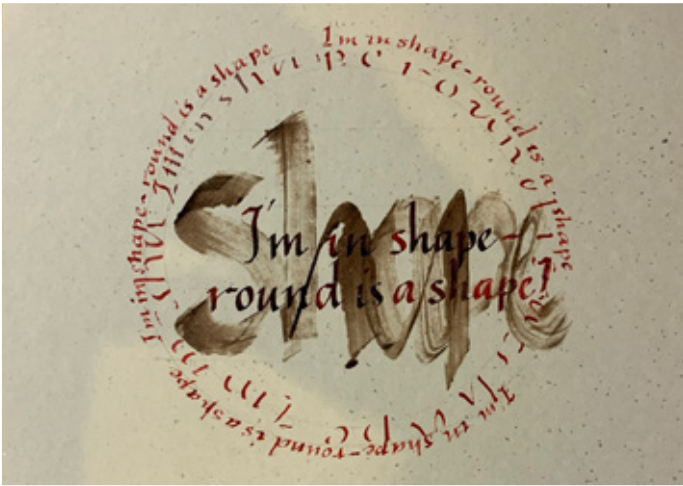 I'm in shape-round is a shape
I'm in shape-round is a shape
I'm in shape-round is a shape
I'm in shape-round is a shape
shape
I'm in shape-
round is a shape!